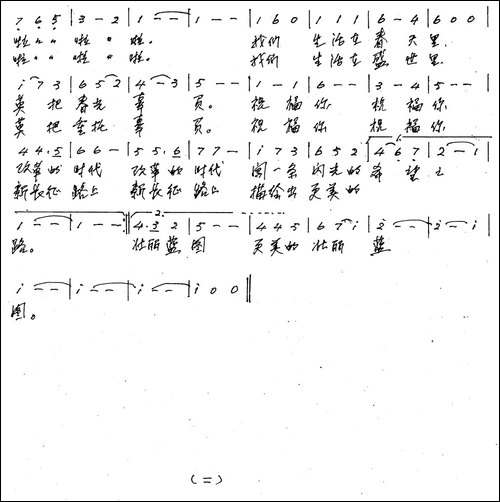 7 6 5 | 3 - 2 | 1 - - | 1 - - | 1 6 0 | 1 1 1 | 6 - 4 | 6 0 0
啦 〃 〃 啦 〃 啦。 我们 生活在 春天里.
啦 〃 〃 啦 〃 啦。 我们 生活在 盛世里.
i 7 3 | 6 5 2 | 4 - 3 | 5 - - | 1 - 1 | 6 - - | 3 - 4 | 5 - -
莫把春光 辜负。 祝福你 祝福你,
莫把重托 辜负。 祝福你 祝福你,
4 4. 5 | 6 6 - | 5 5. 6 | 7 7 - | i 7 3 | 6 5 2 | 4 6 7 | 2 - 1
改革的 时代 改革的 时代 闯一条 闪光的 希望之
新长征 路上 新长征 路上 描绘出 更美的
1 - - | 1 - - :‖ 4. 3 2 | 5 - - | 4 4 5 | 6 7 i | 2 - - | 2 - i
路。 壮丽蓝图 更美的 壮丽 蓝
i - - | i - - | i - - | i 0 0 ‖
图。
(二)